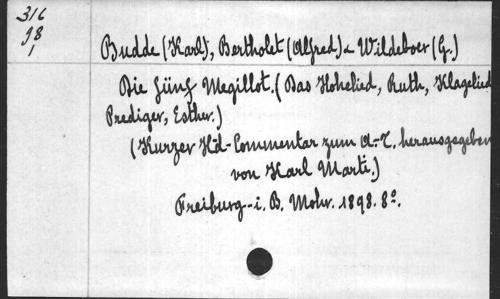 316
98
1
Budde (Karl), Bertholet (Alfred) & Wildeboer (G.)
Die fünf Megillot. (Das Hohelied, Ruth, Klagelied
Prediger, Esther.)
(Kurzer Hd-Commentar zum A.-T. herausgegeben
von Karl Marti.)
Freiburg-i. B. Mohr. 1898. 8º.